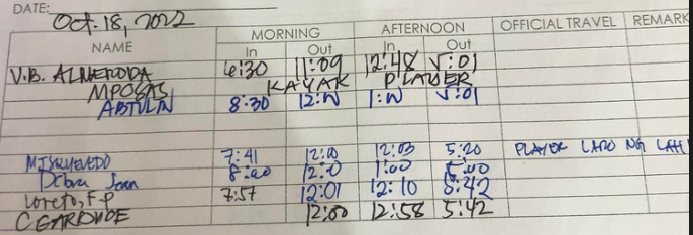 DATE: Oct. 18, 2022
MORNING AFTERNOON OFFICIAL TRAVEL REMARK
NAME In Out In Out
V.B. ALMERODA 6:30 11:09 12:48 5:01
MPOSAS KAYAK PLAYER
ABTULIN 8:30 12:00 1:00 5:01
7:41 12:00 12:03 5:20 PLAYER LARO NG LAHI
Debra Joan 8:00 12:00 1:00 5:00
Loreto, F.P 7:57 12:01 12:10 5:42
12:00 12:58 5:42